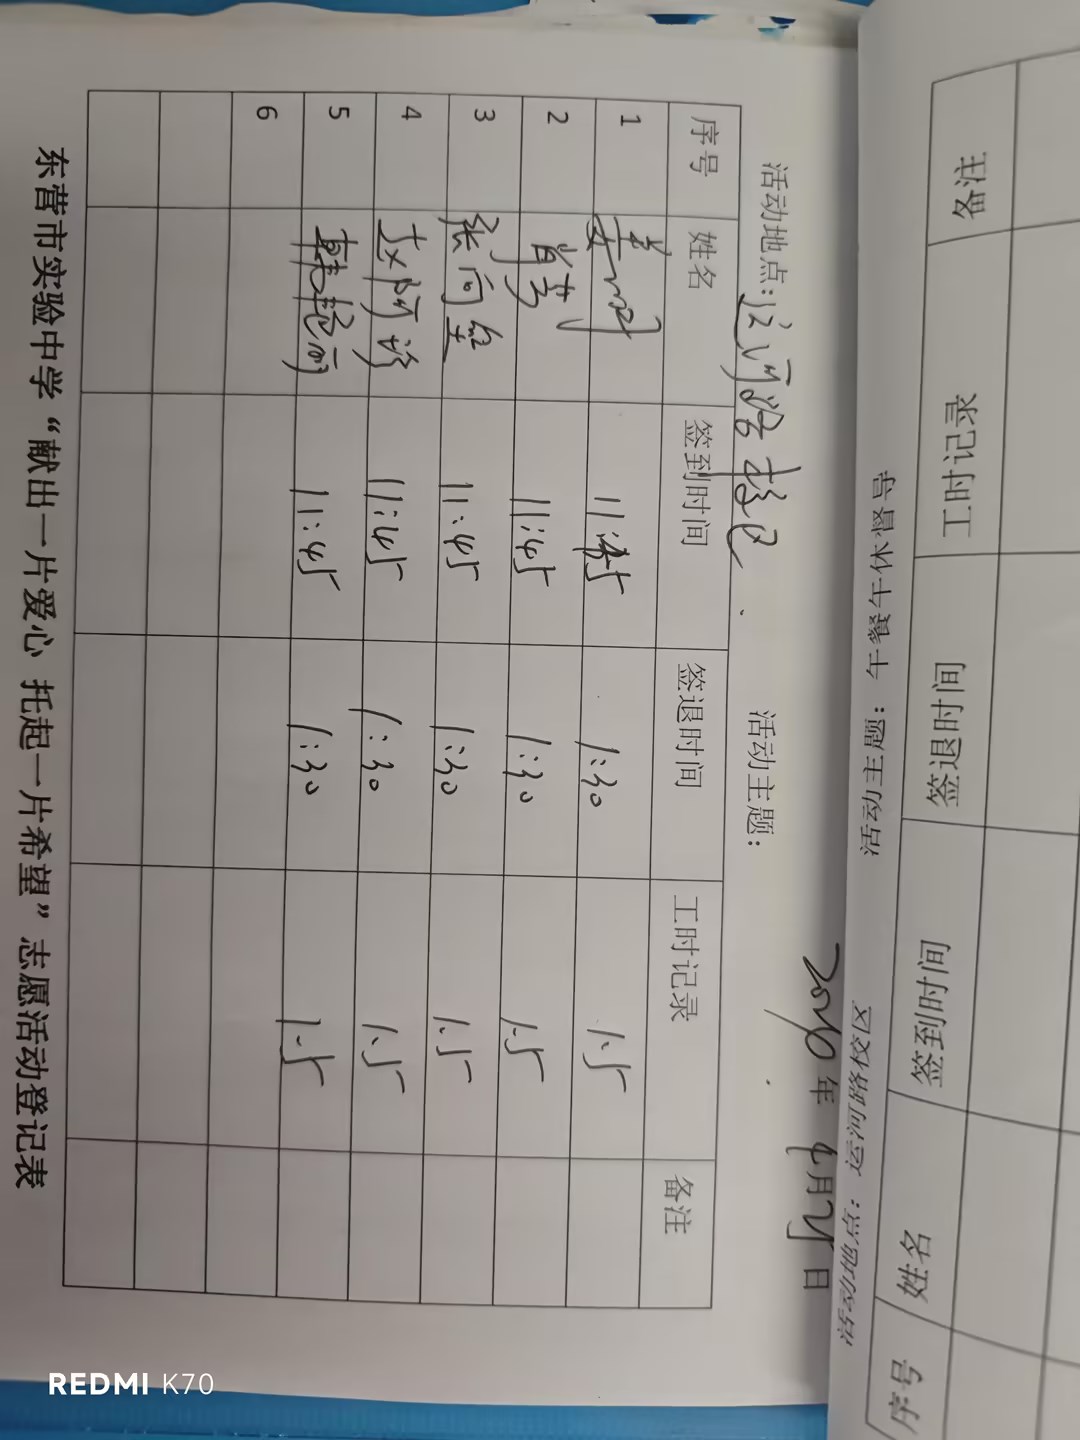 东营市实验中学“献出一片爱心 托起一片希望”志愿活动登记表
2020年4月25日
活动地点:运河路校区 活动主题:
序号 姓名 签到时间 签退时间 工时记录 备注
1 11:45 1:30 1.5
2 肖梦 11:45 1:30 1.5
3 张向红 11:45 1:30 1.5
4 赵阿 11:45 1:30 1.5
5 韩艳丽 11:45 1:30 1.5
6
活动地点: 运河路校区 活动主题: 午餐午休督导
序号 姓名 签到时间 签退时间 工时记录 备注
REDMI K70